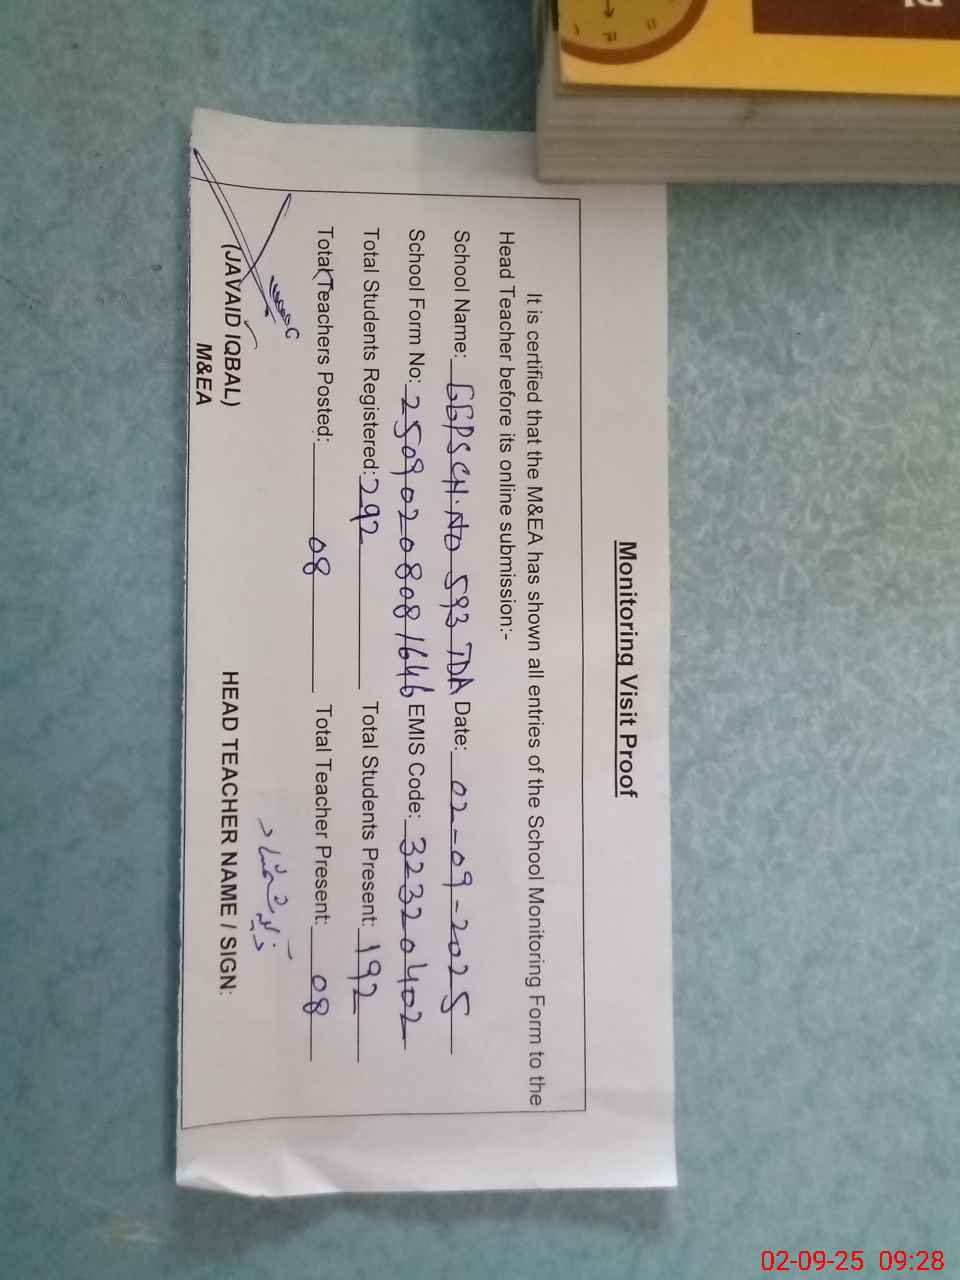 Monitoring Visit Proof
It is certified that the M&EA has shown all entries of the School Monitoring Form to the
Head Teacher before its online submission:-
School Name: GGPS CH. NO 593 TDA Date: 02-09-2025
School Form No: 25090208081646 EMIS Code: 32320402
Total Students Registered: 292 Total Students Present: 192
Total Teachers Posted: 08 Total Teacher Present: 08
(JAVAID IQBAL) HEAD TEACHER NAME / SIGN:
M&EA
02-09-25 09:28